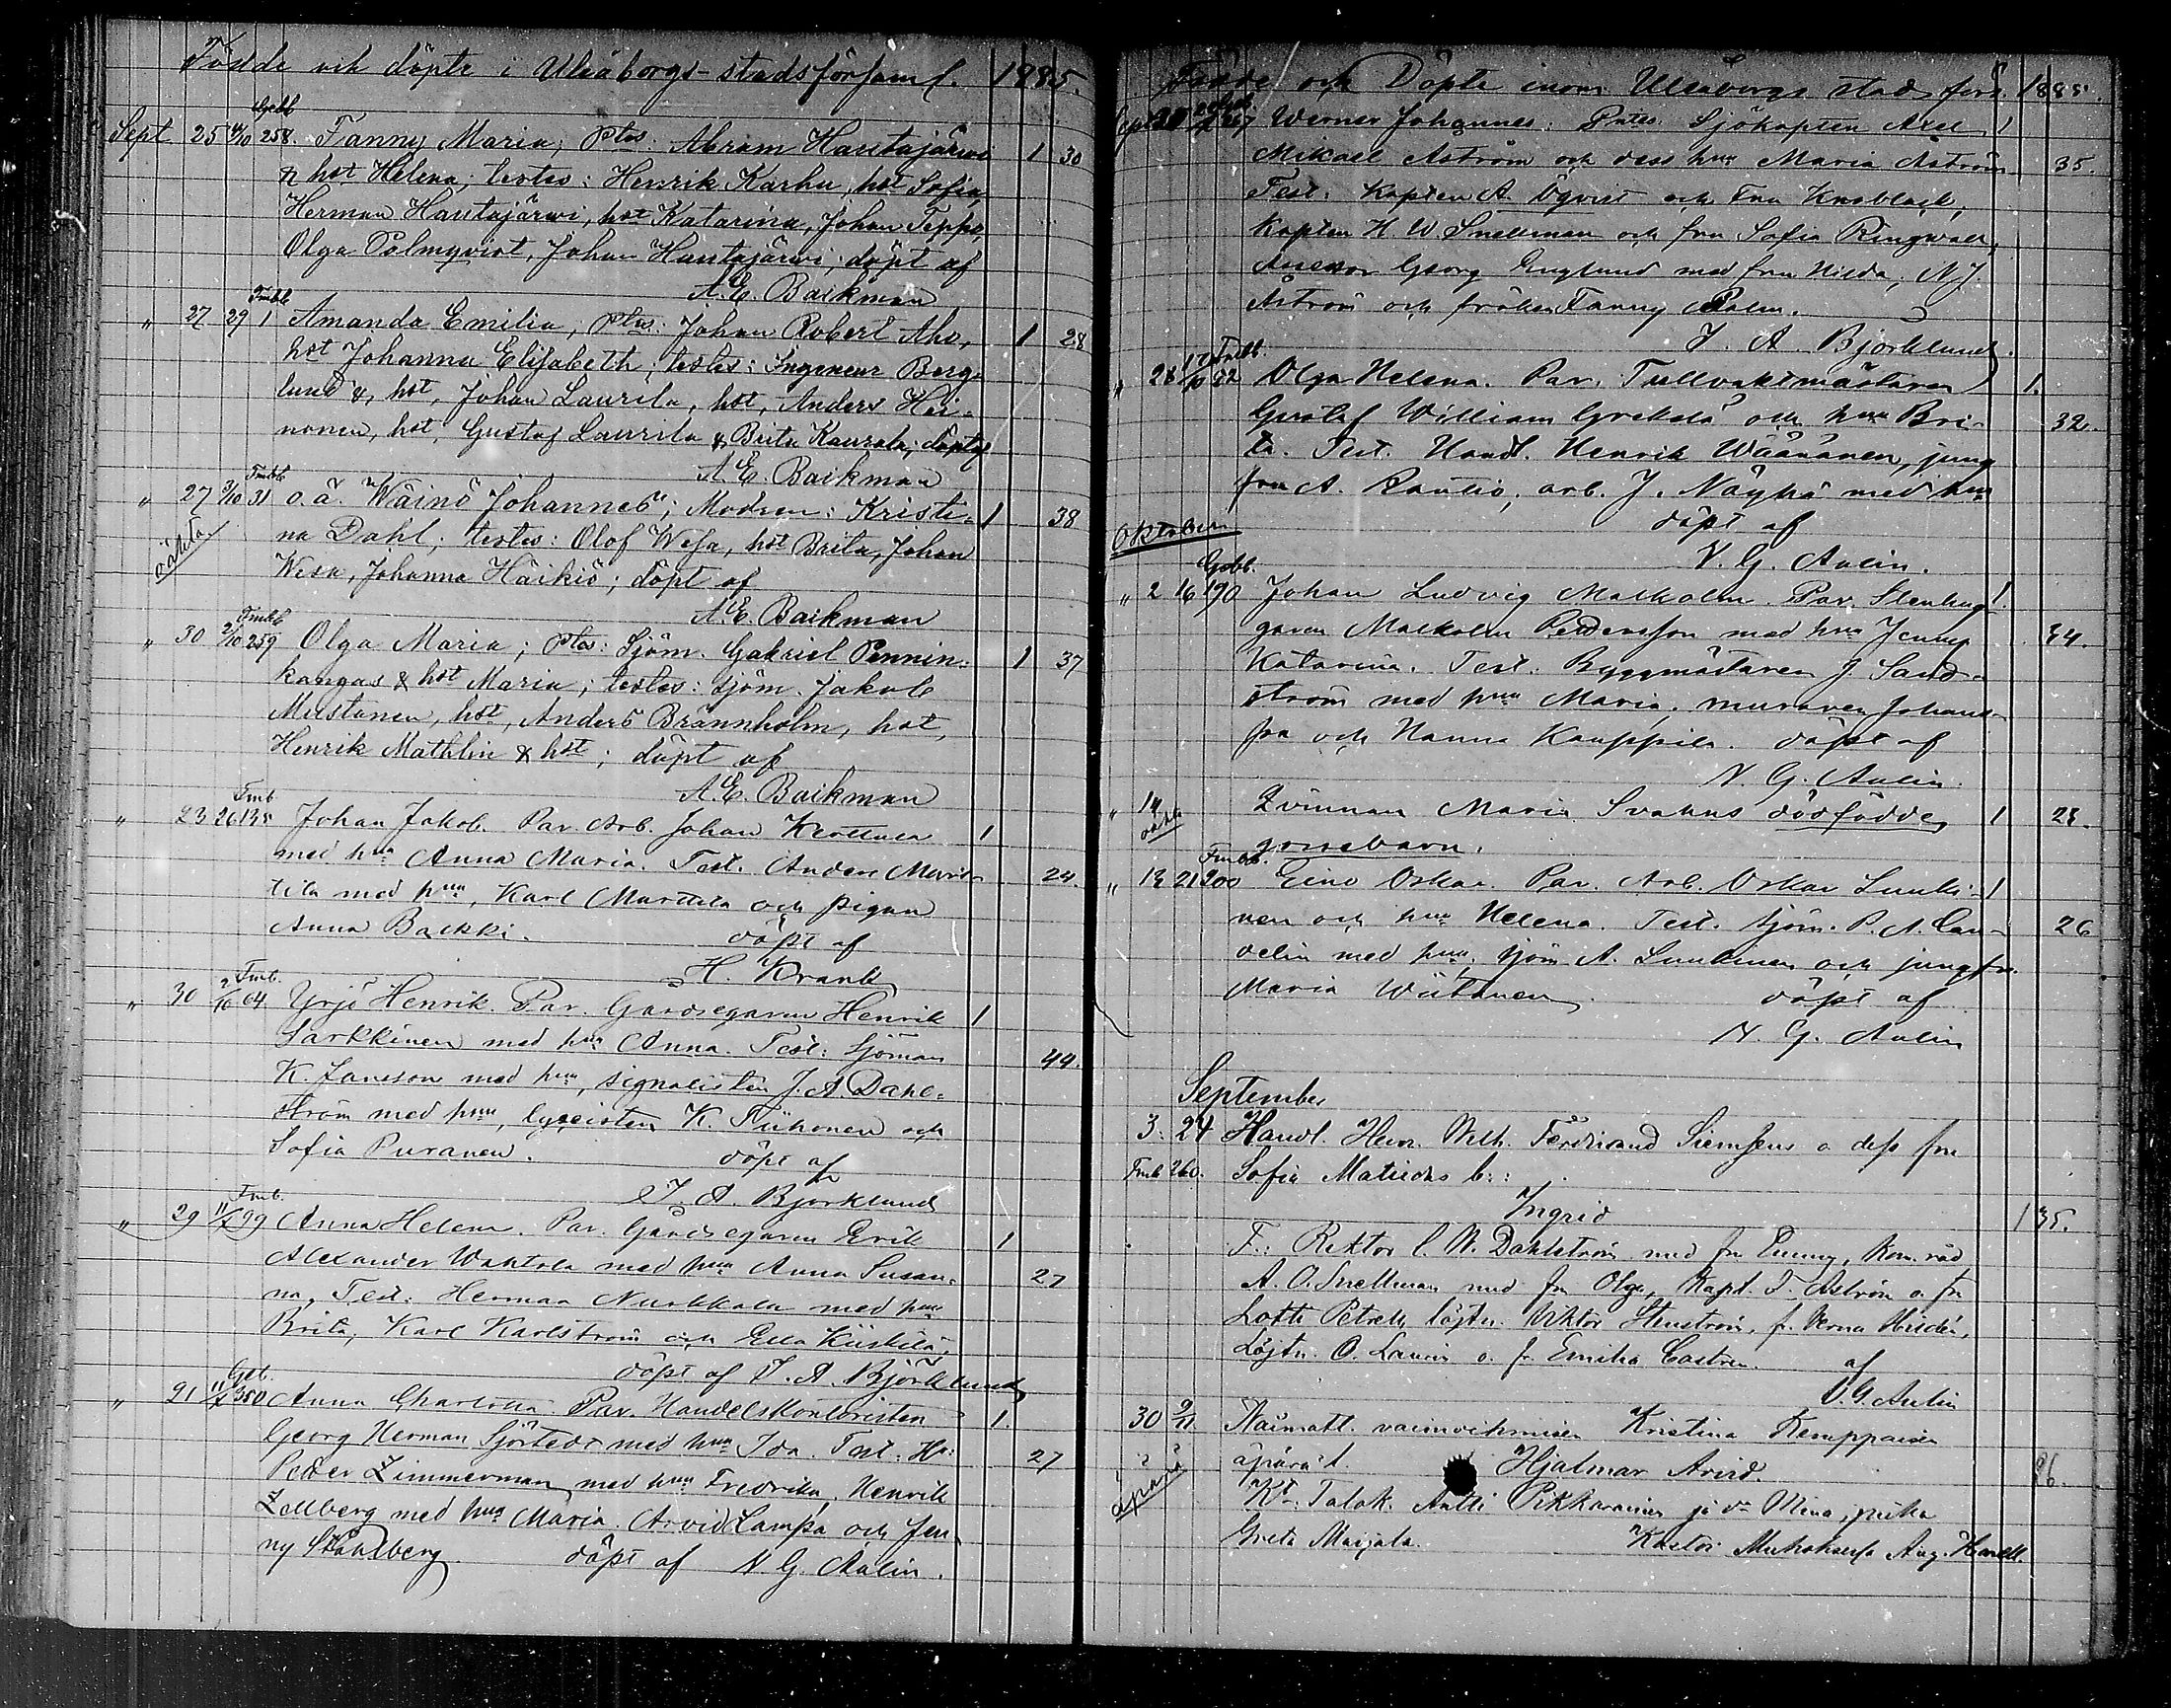 Födde och döpte i Uleåborgs-stadsförsaml. 1885.
Gebb
Sept 25 4/10 258. Fanny Maria; Ptes: Abram Hautajärwi 1 30
& hst Helena; testes: Henrik Karhu, hst Sofia,
Herman Hautajärwi, hst Katarina, Johan Teppo,
Olga Palmqvist, Johan Hautajärwi; döpt af
A. E. Backman
Fmbb
" 27 29 1 Amanda Emilia; Ptes: Johan Robert Aho, 1 28
hst Johanna Elisabeth; testes: Ingenieur Berg-
lund &, hst, Johan Laurila, hst, Anders Hei-
nonen, hst, Gustaf Laurila & Brita Kaurala; döpt af
A. E. Backman
Fmbb
" 27 3/10 31 o.ä. Wäinö Johannes; Modren: Kristi- 1 38
oäkta na Dahl; testes: Olof Wesa, hst Brita, Johan
Wesa, Johanna Häikiö; döpt af
A. E. Backman
Fmbb
" 30 2/10 259 Olga Maria; Ptes: Sjöm. Gabriel Pennin- 1 37
kangas & hst Maria; testes: sjöm. Jakob
Mustonen, hst, Anders Brännholm, hst,
Henrik Mathlin & hst; döpt af
A. E. Backman
Fmb
" 23 26 135 Johan Jakob. Par. Arb. Johan Kerttula 1
med hu Anna Maria. Test. Anders Mart- 24.
tila med hu, Karl Marttila och pigan
Anna Backki. döpt af
H. Krank
Fmb.
" 30 2/10 64 Yrjö Henrik. Par. Gårdsegaren Henrik 1
Sarkkinen med hu Anna. Test: Sjöman 44.
K. Janson med hu, signalisten J. A. Dahl-
ström med hu, lyceisten K. Tiihonen och
Sofia Puranen. döpt af
J. A. Björklund
Fmb.
" 29 11/X 99 Anna Helena. Par. Gårdsegaren Erik 1
Alexander Wahtola med hu Anna Susan- 27
na, Test: Herman Nurkkala med hu
Brita, Karl Karlström och Ella Kiiskilä.
döpt af J. A. Björklund
Geb.
" 21 11/X 350 Anna Charlotta Par. Handelskontoristen 1.
Georg Herman Sjöstedt med hu Ida. Test. Hr 27
Peter Zimmerman med hu Fredrika, Henrik
Zellberg med hu Maria. Arvid Lampa och Jen-
ny Ståhlberg. döpt af N. G. Aulin.
Födde och Döpte inom Uleåborgs stads förs. 1885.
Sept Werner Johannes: Ptes. Sjökapten Axel 1
Mikael Åström och dess hu Maria Åström 35.
Test. Kapten A. Öqvist och Fru Knoblock,
Kapten H. W. Snellman och fru Sofia Ringwall,
Assessor Georg Englund med fru Hilda, N. J.
Åström och fröken Fanny Palm.
J. A. Björklund.
Fmbb.
" 28 1/10 52 Olga Helena. Par. Tullvaktmästaren 1.
Gustaf William Grekelä och hu Bri- 32.
ta. Test. Handl. Henrik Wäänänen, jung
fru A. Rautio, arb. J. Näyhä med hu
döpt af
Oktober V. G. Aulin.
Gebb.
" 2 16 190 Johan Ludvig Malkolm. Par. Stenhug- 1.
garen Malkolm Pedersson med hu Jenny 34.
Katarina. Test. Byggmästaren J. Sand-
ström med hu Maria, muraren Johans-
son och Hanna Kauppila. döpt af
N. G. Aulin.
" 14 Qvinnan Maria Svahns dödfödde 1 28.
oäkta gossebarn.
Fmbb.
" 13 21 200 Eino Oskar. Par. Arb. Oskar Luuki- 1
nen och hu Helena. Test. Sjöm. P. A. Can- 26
delin med hu, sjöm A. Luukinen och jungfru
Maria Wiitanen döpt af
N. G. Aulin
September
3. 24 Handl. Henr. Wilh. Ferdinand Siemsens o. dess fru
Fmb 260. Sofia Matildas b.:
Ingrid 1 35.
F.: Rektor C. W. Dahlström med fru Emmy, Kom. råd
A. O. Snellman med fru Olga, Kapt. F. Åström o. fru
Lotti Petrell, löjtn. Viktor Stenström, f. Verna Hedén,
Löjtn. O. Laurin o. fr. Emilia Castren. af
V. G. Aulin
30 9/11. Naimatt. vaimoihmisen Kristina Kemppaisen
äpärä äpärä l. Hjalmar Arvid. 26.
Kt. Talok. Antti Pikkarainen ja vo Miina, piika
Greta Maijala. Kastoi Muhoksessa Aug. Havell.